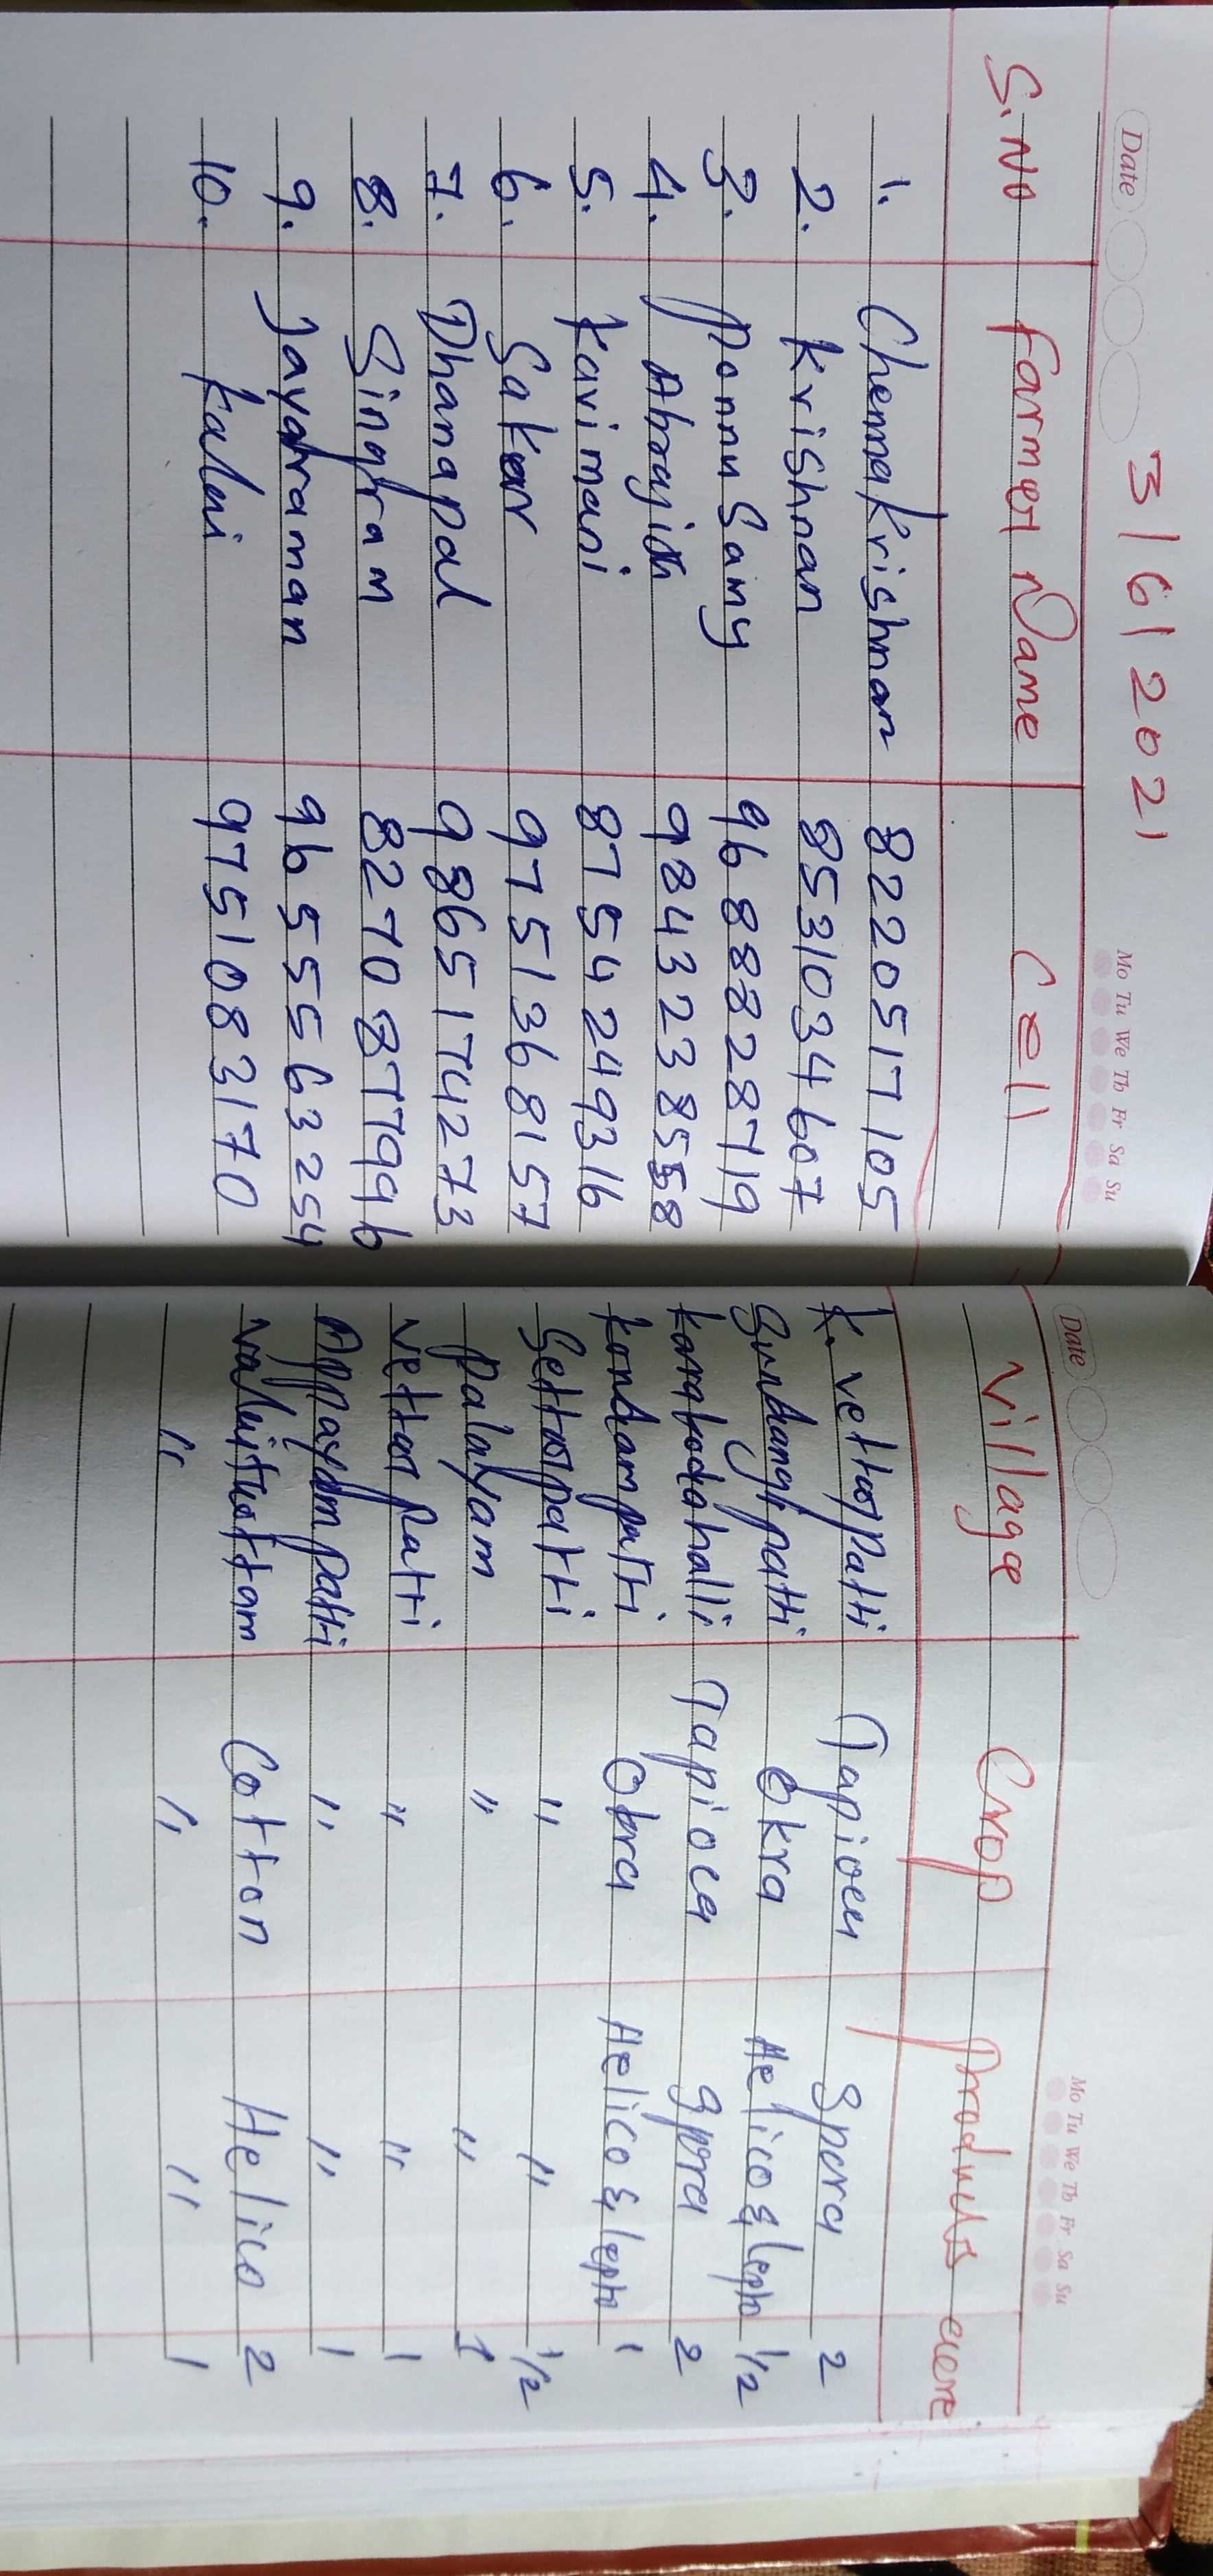 Date 3/6/2021 Mo Tu We Th Fr Sa Su Date Mo Tu We Th Fr Sa Su
S.No Farmer Name Cell Village Crop Products acre
1. Chennakrishnan 8220517105 K. vettarpatti Tapioca Spora 2
2. Krishnan 8531034607 Gundangipatti Okra Helico & lepto 1/2
3. Ponnu Samy 9688828719 Tapioca Spora 2
4. 9843238558 Kondampatti Okra Helico & lepto 1
5. Kavimani 8754249316 Settarpatti " " 1/2
6. 9751368157 Palayam " " 1
7. Dhanapal 9865174273 Vettarpatti " " 1
8. Singram 8270877996 " " 1
9. Jayaraman 9655563254 Cotton Helico 2
10. Kalai 9751083170 " " " 1